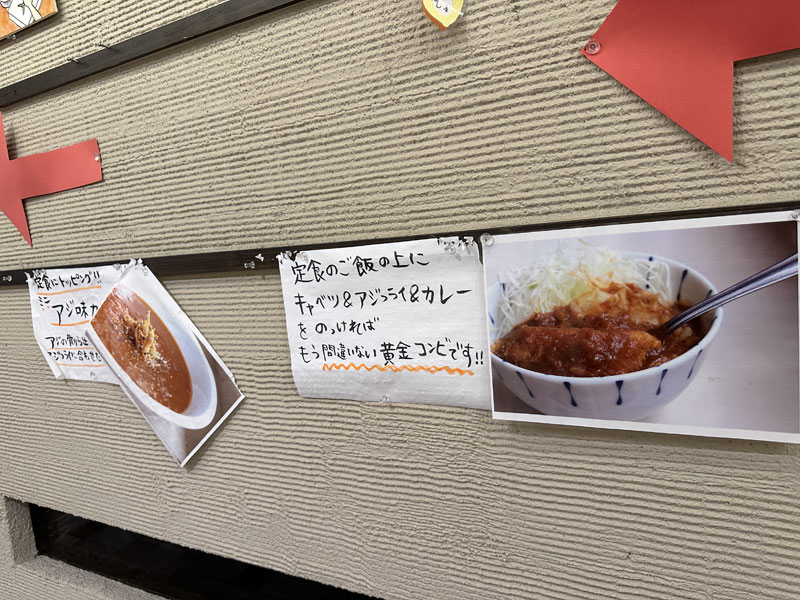 定食にトッピング!!
ミニ
アジ味カ
アジの骨から
アジフライに合わせた
定食のご飯の上に
キャベツ&アジフライ&カレー
をのっければ
もう間違いない黄金コンビです!!